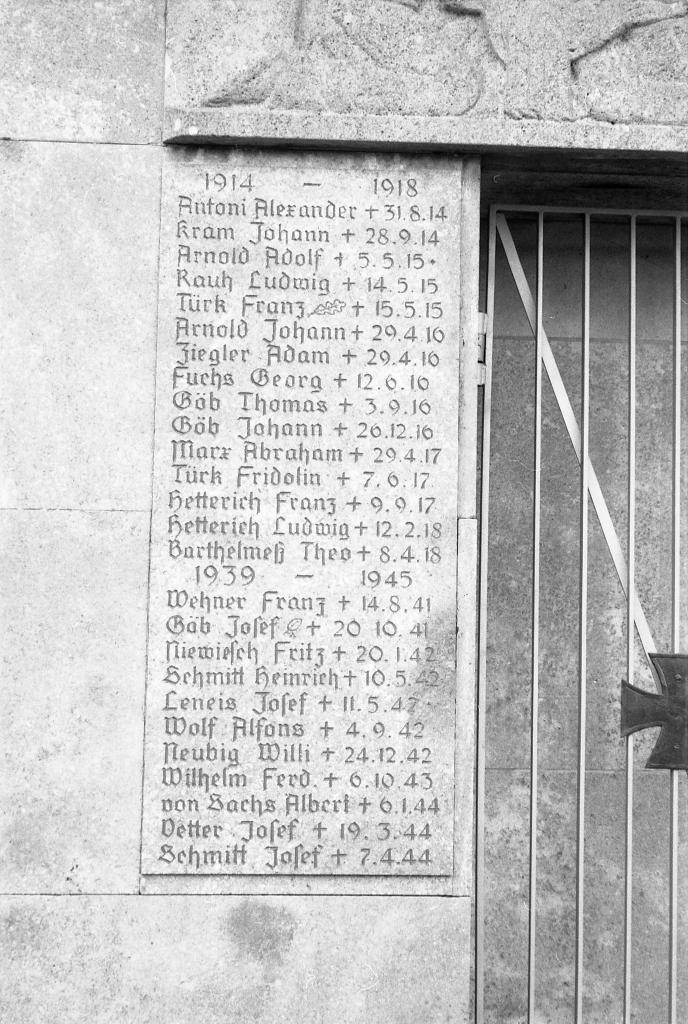 1914 – 1918
Antoni Alexander + 31.8.14
Kram Johann + 28.9.14
Arnold Adolf + 5.5.15
Rauh Ludwig + 14.5.15
Türk Franz + 15.5.15
Arnold Johann + 29.4.16
Ziegler Adam + 29.4.16
Fuchs Georg + 12.6.16
Göb Thomas + 3.9.16
Göb Johann + 26.12.16
Marx Abraham + 29.4.17
Türk Fridolin + 7.6.17
Hetterich Franz + 9.9.17
Hetterich Ludwig + 12.2.18
Barthelmeß Theo + 8.4.18
1939 – 1945
Wehner Franz + 14.8.41
Göb Josef + 20 10.41
Niewiesch Fritz + 20.1.42
Schmitt Heinrich + 10.5.42
Leneis Josef + 11.5.42
Wolf Alfons + 4.9.42
Neubig Willi + 24.12.42
Wilhelm Ferd. + 6.10.43
von Sachs Albert + 6.1.44
Vetter Josef + 19.3.44
Schmitt Josef + 7.4.44